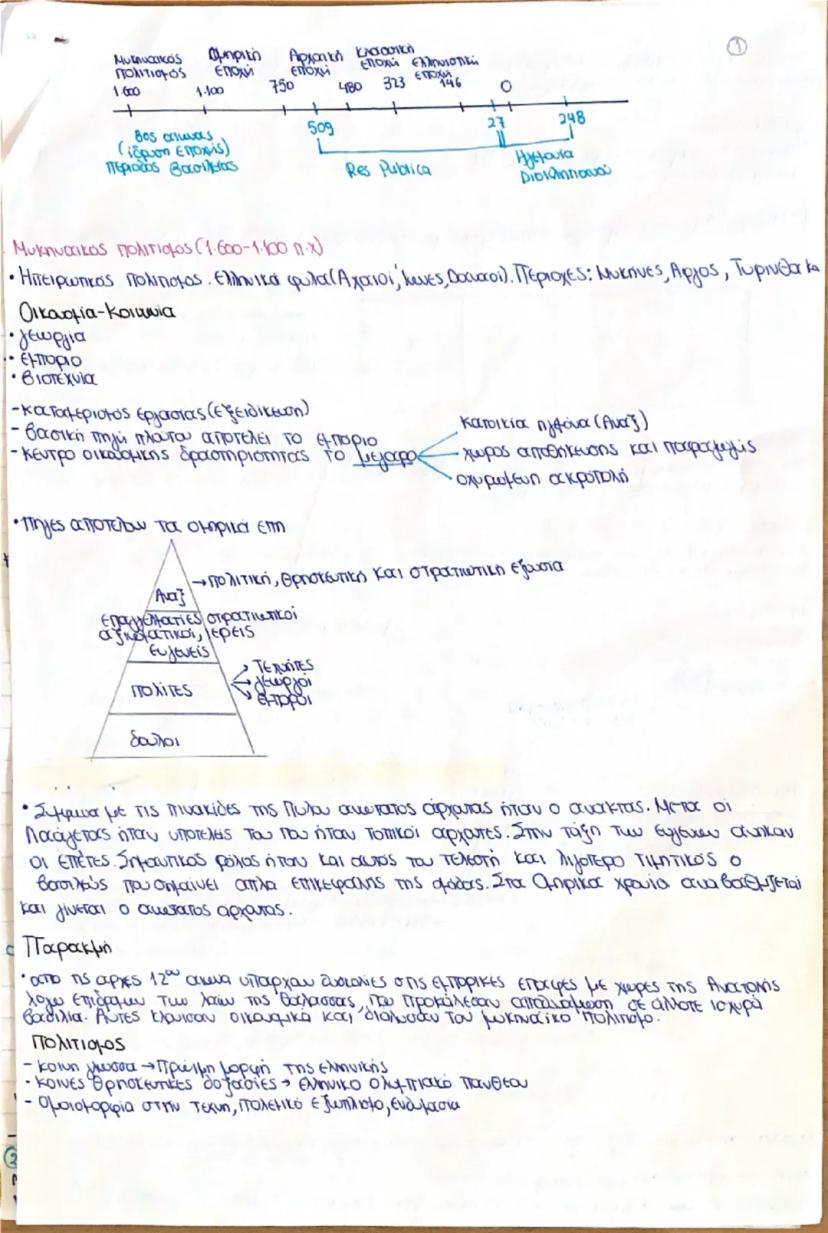 ①
Μυκηναικός Ομηρική Αρχαϊκή Κλασσική Ελληνιστική
Πολιτισμός εποχή εποχή εποχή εποχή
1.600 1.100 750 480 323 146 0
509 27 248
8ος αιωνας
(ίδρυση εποχής)
περίοδος βασιλείας
Res Publica
Ηγεμονία
Διοκλητιανού
Μυκηναικος πολιτισμος (1.600-1.100 π.χ)
• Ηπειρωτικός πολιτισμος. Ελληνικά φυλα (Αχαιοί, Ιωνες, Δαναοί). Περιοχες: Μυκηνες, Αργος, Τυρινθα κα
Οικονομία-Κοινωνία
• γεωργία
• εμποριο
• βιοτεχνία
- καταμερισμός εργασίας (εξειδικευση)
- βασική πηγή πλούτου αποτελεί το εμποριο
- κεντρο οικονομικης δραστηριοτητας το μεγαρο
κατοικία ηγεμόνα (Αναξ)
χωρος αποθηκευσης και παραγωγής
οχυρωμενη ακροπολη
• πηγες αποτελουν τα ομηρικά επη
Αναξ → πολιτική, θρησκευτικη και στρατιωτικη εξουσια
επαγγελματιες στρατιωτικοί
αξιωματικοί, ιερεις
ευγενείς
πολίτες
τεχνίτες
γεωργοί
εμποροι
δουλοι
• Σύμφωνα με τις πινακίδες της Πυλου ανώτατος άρχοντας ήταν ο ανακτας. Μετα οι
Λααγετας ήταν υποτελεις του που ήταν τοπικοί αρχοντες. Στην τάξη των ευγενων ανηκαν
οι επέτες. Σημαντικος ρόλος ήταν και αυτος του τελεστή και λιγοτερο τιμητικος ο
βασιλεύς που σημαίνει απλα επικεφαλης της ομάδας. Στα Ομηρικα χρονια αναβαθμίζεται
και γινεται ο ανωτατος αρχοντας.
Παρακμή
• απο τις αρχες 12ου αιωνα υπαρχουν δυσκολίες στις εμπορικές επαφες με χωρες της Ανατολης
λογω επιδρομων των λαών της θαλασσας, που προκάλεσαν αποδυναμωση σε άλλοτε ισχυρα
βασιλεια. Αυτες κλονισαν οικονομικα και διαλυσαν τον μυκηναϊκο πολιτισμο.
Πολιτισμος
- κοινη γλωσσα → Πρώιμη μορφή της ελληνικής
- κοινές θρησκευτικες δοξασίες → ελληνικο ολυμπιακό πανθεον
- Ομοιομορφια στην τεχνη, πολεμικό εξοπλισμο, ενδυμασια
②